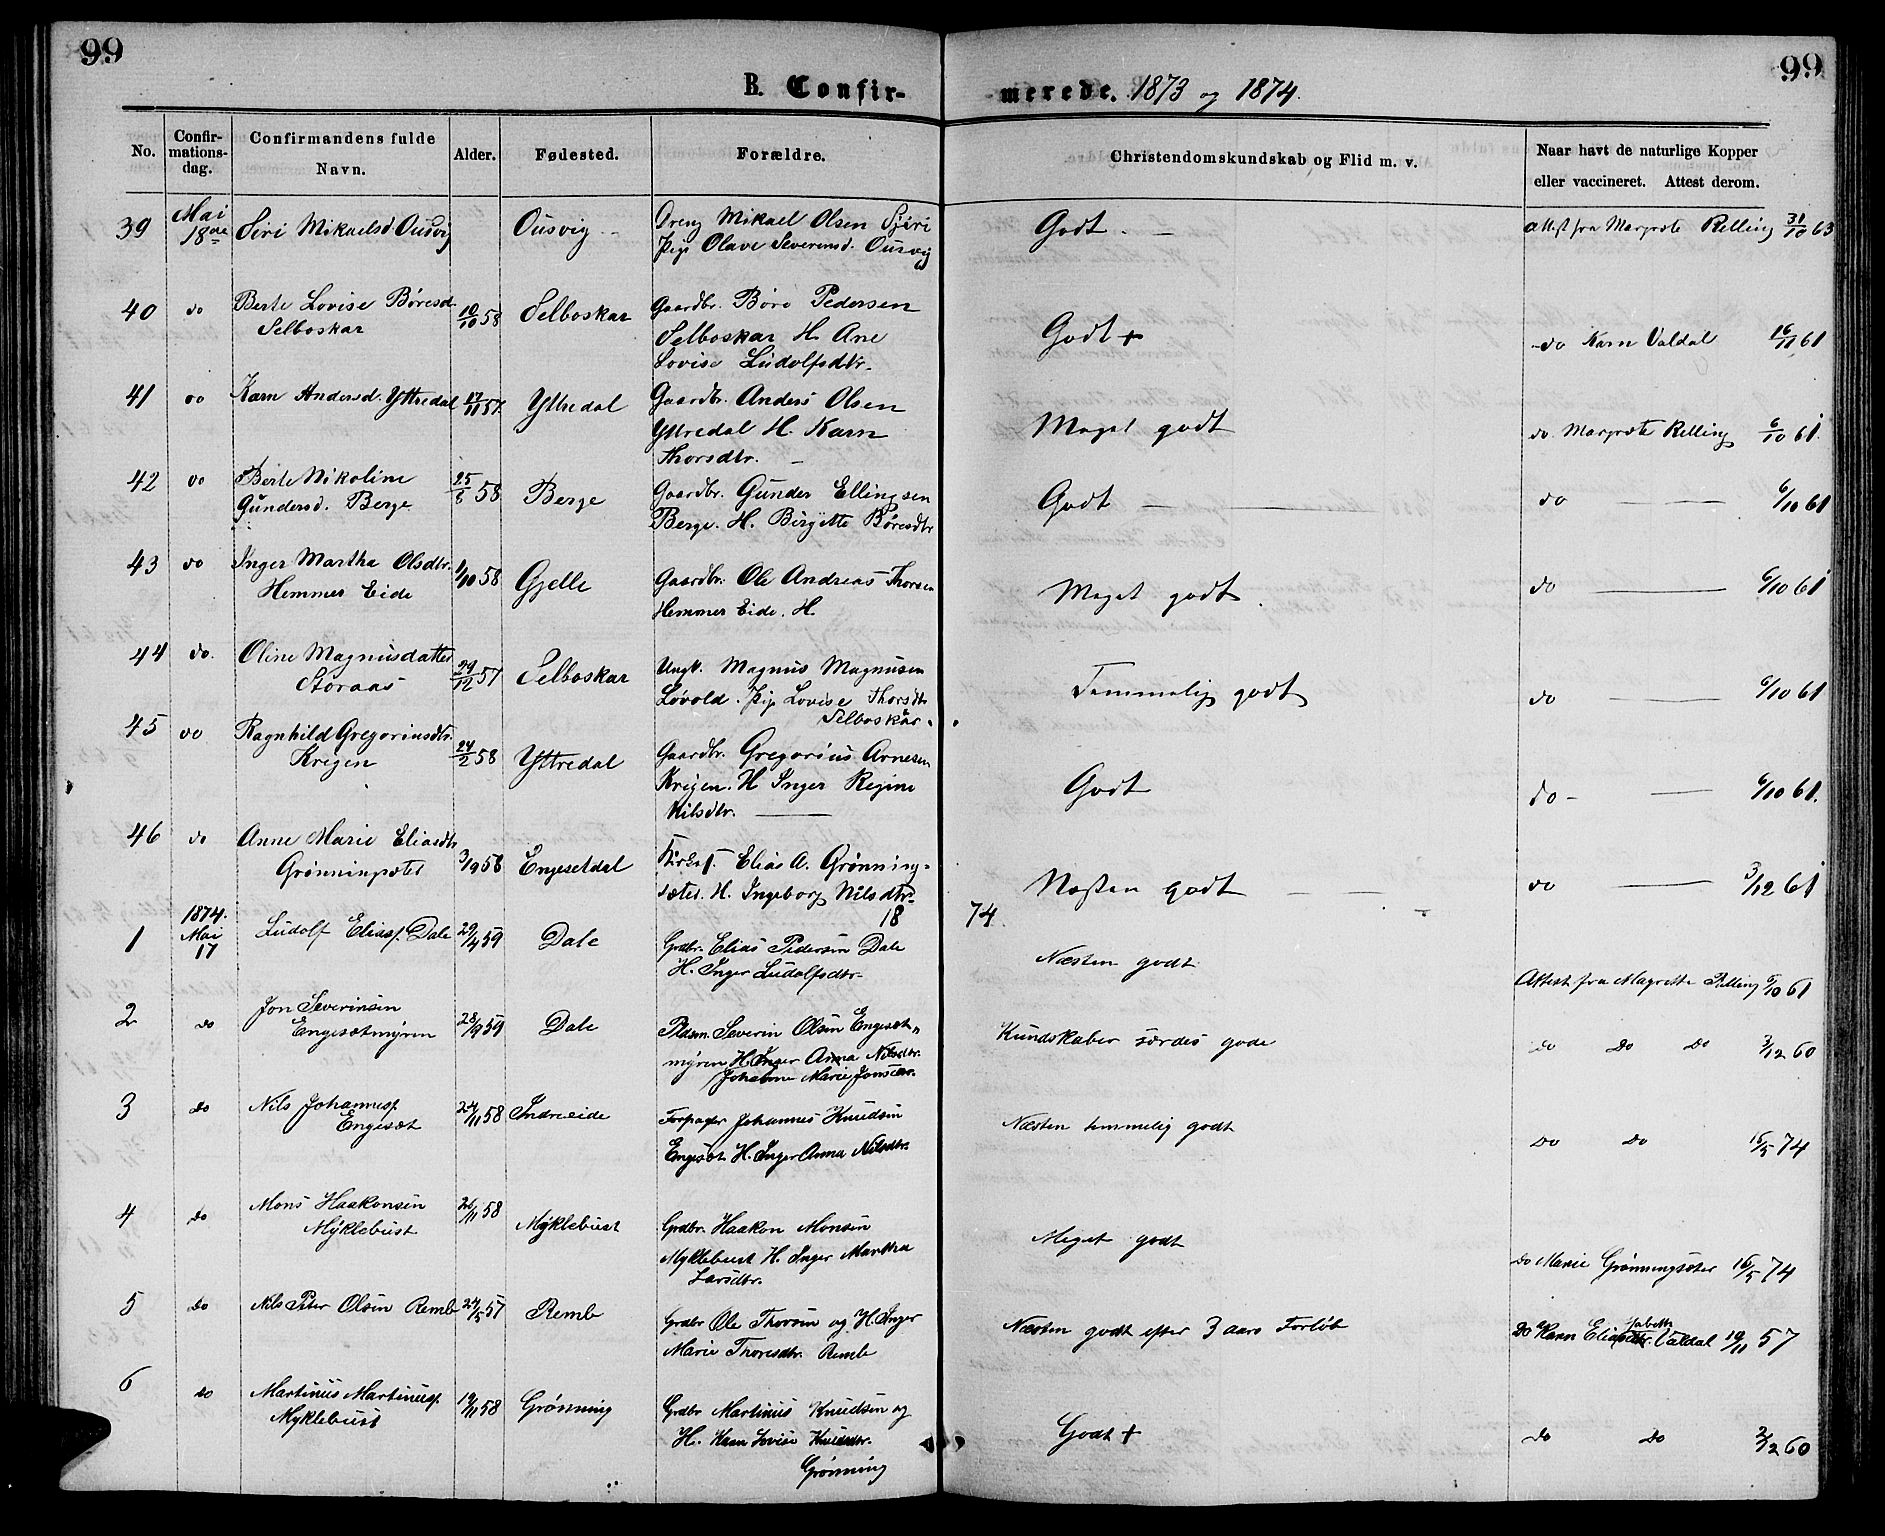 99
99
B. Confir-
-merede. 1873 og 1874.
No.
Confir-
mations-
dag.
Confirmandens fulde
Navn.
Alder.
Fødested.
Forældre.
Christendomskundskab og Flid m. v.
Naar havt de naturlige Kopper
eller vaccineret. Attest derom.
39 Mai 18de Siri Mikaelsd Ousvig Ousvig Dreng Mikael Olsen
Pige Olave Severinsd. Ousvig
Godt. Attest fra Margrete Relling 31/10 63
40 do Berte Lovise Børesd.
Selboskar
10/10 58 Selboskar Gaardbr. Børe Pedersen
Selboskar H. Ane
Lovise Ludolfsdtr.
Godt + do Karn Valdal 16/11 61
41 do Karn Andersd. Yttredal 17/11 57 Yttredal Gaardbr. Anders Olsen
Yttredal H. Karn
Thorsdtr.
Meget godt do. Margrete Relling 6/10 61.
42 do Berte Nikoline
Gundersd. Berge
25/8 58 Berge Gaardbr. Gunder Ellingsen
Berge. H. Birgitte Børesdtr
Godt do 6/10 61
43 do Inger Martha Olsdtr.
Hemmer Eide
1/10 58 Gjelle Gaardbr. Ole Andreas Thorsen
Hemmer Eide. H.
Meget godt. do 6/10 61
44 do. Oline Magnusdatter
Storaas
29/12 57 Selboskar Ungk. Magnus Magnusen
Løvold. Pige Lovise Thorsdtr
Selboskar.
Temmelig godt do 6/10 61
45 do Ragnhild Gregoriusdtr.
Krigen
24/2 58 Yttredal Gaardbr. Gregorius Arnesen
Krigen. H Inger Regine
Nilsdtr.
Godt do 6/10 61.
46 do Anne Marie Eliasdtr
Grønningsæter
3/9 58 Engesetdal Elias A. Grønning-
sæter. H. Ingeborg Nilsdtr.
Næsten godt do 3/12 61
18 74.
1 1874.
Mai
17
Ludolf Eliass. Dale 29/4 59 Dale Grdbr. Elias Pedersen Dale
H. Inger Ludolfsdtr.
Næsten godt Attest fra Magrette Relling 6/10 61
2 Do Jon Severinsen
Engesætmyren
28/9 59 Dale Pldsm. Severin Olsen Engesæt-
myren H. Inger Anna Nilsdtr.
Johanne Marie Jonsdtr.
Kundskaber særdes gode Do Do Do 3/12 60
3 Do Nils Johanness.
Engesæt
24/11 58 Indreeide Forpagter Johannes Knudsen
Engesæt H. Inger Anna Nilsdtr.
Næsten temmelig godt Do Do 16/5 74
4 Do Mons Haakonsen
Myklebust
26/11 58 Myklebust Grdbr. Haakon Monsen
Myklebust H. Inger Martha
Larsdtr.
Meget godt Do Marie Grønningsæter 16/5 74
5 Do Nils Peter Olsen Remb 24/5 57 Remb Grdbr Ole Thorsen og H. Inger
Marie Thoresdtr. Remb
Næsten godt efter 3 aars Forløb Do Karn Elisabeth Valdal 19/11 57
6 Do Martinus Martinuss.
Myklebust
19/11 58 Grønning Grdbr Martinus Knudsen og
H. Karn Lovise Knudsdtr.
Grønning
Godt + Do Do 2/2 60